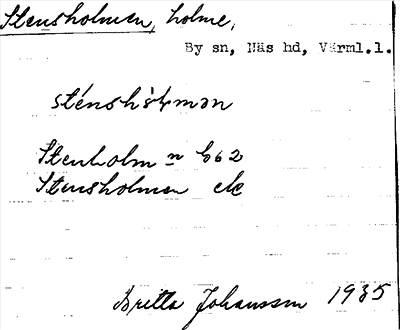 Stensholmen, holme,
By sn, Näs hd, Värml.l.
Stenholm n
Stensholmen ek
Britta Johansson 1935